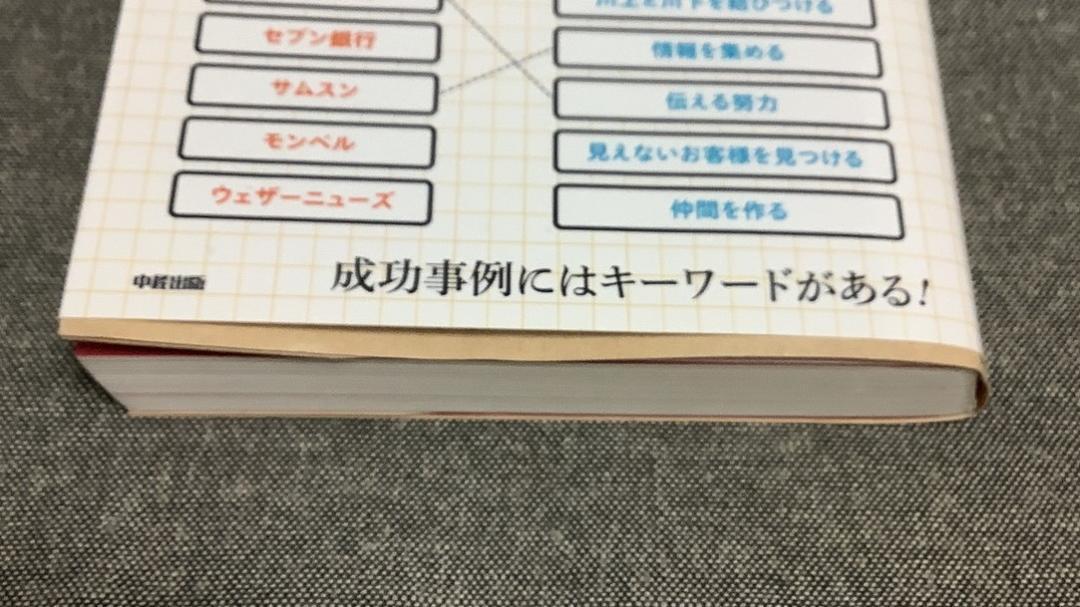 川上と川下を結びつける
セブン銀行
情報を集める
サムスン
伝える努力
モンベル
見えないお客様を見つける
ウェザーニューズ
仲間を作る
中経出版
成功事例にはキーワードがある!